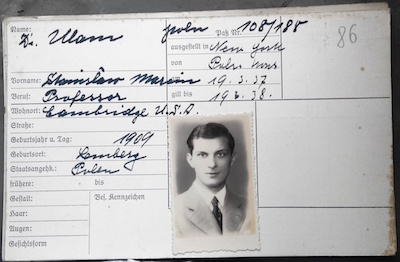 Name: Dr. Ulam poln Paß Nr. 108/188
86
ausgestellt in New York
von Poln. Kons
Vorname: Stanislaw Marcin am 19.3.37
Beruf: Professor gilt bis 19.3.38.
Wohnort: Cambridge U.S.A.
Straße:
Geburtsjahr u. Tag: 1909
Geburtsort: Lemberg
Staatsangehk.: Polen
frühere: bis
Gestalt: Bes. Kennzeichen
Haar:
Augen:
Gesichtsform